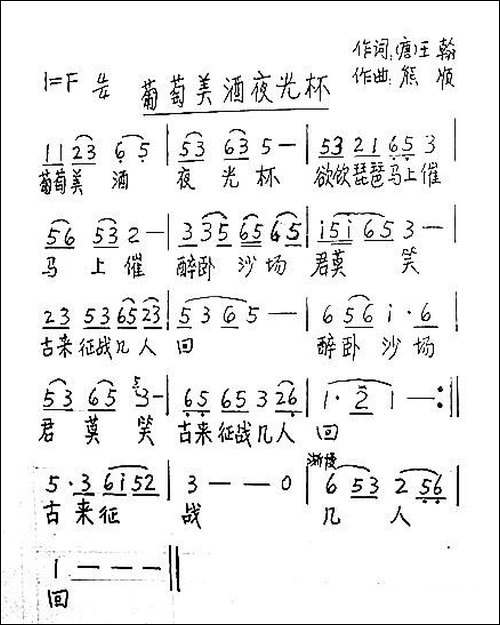 作词:(唐)王翰
1=F 4/4 葡萄美酒夜光杯 作曲:熊 顺
11 23 6 5 | 53 63 5 — | 53 21 65 3
葡萄美 酒 夜 光 杯 欲饮琵琶马上催
56 53 2 — | 335 65 645 | i5i 65 3 —
马 上 催 醉卧 沙 场 君莫 笑
23 53 65 23 | 5 3 6 5 — | 6 56 i · 6
古来征战几人 回 醉卧 沙 场
53 65 3 — | 65 65 3 26 | 1 · 2 1 — :||
君 莫 笑 古来征战几人 回
5 · 3 6i52 | 3 — — 0 | 渐慢 6 53 2 56
古 来征 战 几 人
1 — — — ||
回